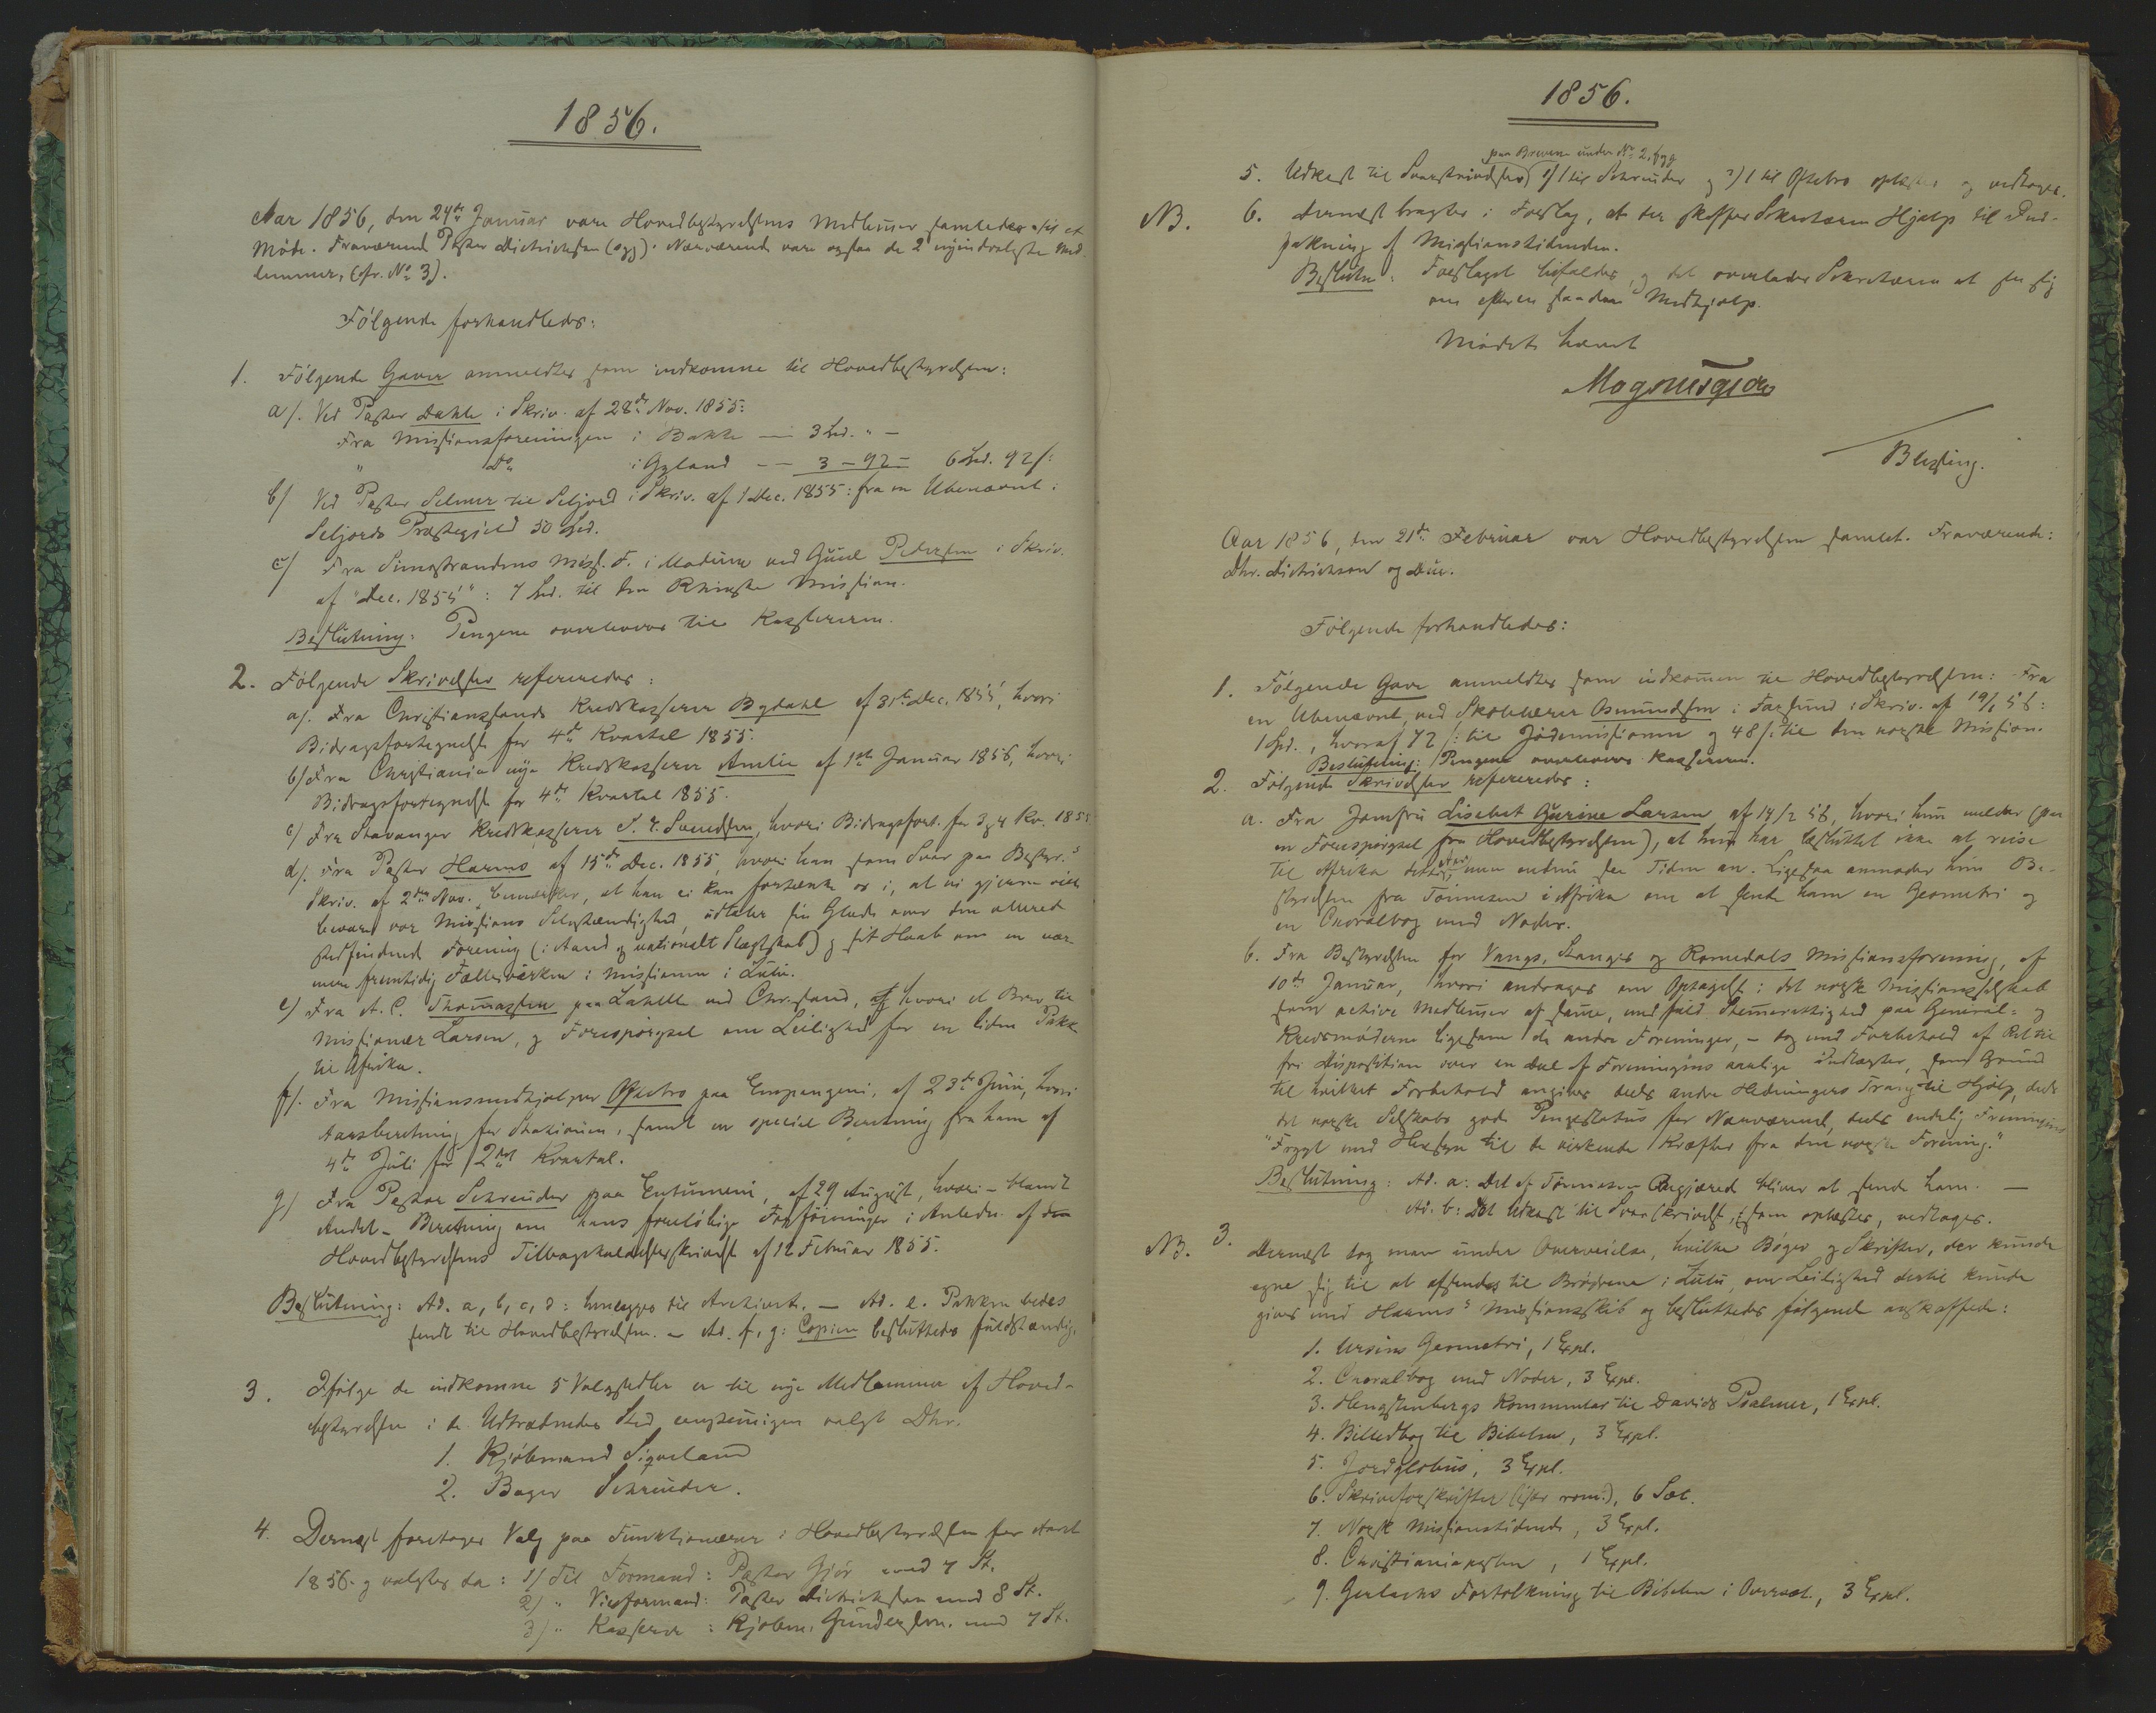 1856.
Aar 1856, den 24de Januar vare Hovedbestyrelsens Medlemmer samlede til et
Möde. Fraværende Pastor Dietrichson (syg). Nærværende vare ogsaa de 2 nyindvalgte Med-
lemmer, (cfr. No 3).
Fölgende forhandledes:
1. Fölgende Gaver anmeldtes som indkomne til Hovedbestyrelsen:
a/. Ved Pastor Dahle i Skriv. af 28de Nov. 1855:
Fra Missionsforeningen i Bakke — 3 Spd. " —
" Do i Gyland — 3 – 92 – 6 Spd. 92 /:
b/ Ved Pastor Selmer til Seljord i Skriv. af 1 Dec. 1855: fra en Ubenævnt i
Seljords Præstegjeld 50 Spd.
c/ Fra Simostrandens Miss. F. i Modum ved Gunel Pedersen i Skriv.
af "Dec. 1855": 7 Spd. til den Rhinske Mission.
Beslutning: Pengene overleveres til Kassereren.
2. Fölgende Skrivelser refereredes:
a/. Fra Christianssands Kredskasserer Bydahl af 31te Dec. 1855, hvori
Bidragsfortegnelse for 4de Kvartal 1855.
b/ Fra Christiania nye Kredskasserer Amlie af 1ste Januar 1856, hvori
Bidragsfortegnelse for 4de Kvartal 1855.
c/ Fra Stavanger Kredskasserer S. E. Svendsen, hvori Bidragsfort. for 3 & 4 Kv. 1855
d/. Fra Pastor Harms af 15de Dec. 1855, hvori han som Svar paa Bestyr.s
Skriv. af 2den Nov. bemærker, at han ei kan fortænke os i, at vi gjerne ville
bevare vor Missions Selvstændighed, udtaler sin Glæde over den allerede
stedfindende Forening (i Aand og nationalt Slægtskab) og sit Haab om en nær-
mere fremtidig Fællesvirken i Missionen i Zulu.
e/ Fra A. C. Thomassen paa Lahelle ved Chr.sand, hvori et Brev til
Missionær Larsen, og Forespörgsel om Leilighed for en liden Pakke
til Afrika.
f/. Fra Missionsmedhjælper Oftebro paa Empangeni, af 23de Juni, hvori
Aarsberetning for Stationen, samt en speciel Beretning fra ham af
4de Juli for 2det Kvartal.
g) Fra Pastor Schreuder paa Entumeni, af 29 August, hvori – blandt
Andet – Beretning om hans forelöbige Forföininger i Anledn. af
Hovedbestyrelsens Tilbagekaldelsesskrivelse af 12 Februar 1855.
Beslutning: Ad. a, b, c, d: henlægges til Archivet. — Ad. e. Pakken bedes
sendt til Hovedbestyrelsen. – Ad. f, g: Copien besluttedes fuldstændig.
3. Ifölge de indkomne 5 Valgsedler er til nye Medlemmer af Hoved-
bestyrelsen i de Udtrædendes Sted enstemmigen valgt Dhr.
1. Kjöbmand Siqveland
2. Bager Schreuder.
4. Dernæst foretoges Valg paa Funktionærer i Hovedbestyrelsen for Aaret
1856 og valgtes da: 1/ Til Formand: Pastor Gjör med 7 St.
2) " Viceformand: Pastor Dietrichson med 8 St.
3) " Kasserer: Kjöbm. Gundersen. med 7 St.
1856.
paa Brevene under No 2. f & g
5. Udkast til Svarskrivelser 1/ til Schreuder og 2/ til Oftebro oplæstes og vedtoges.
NB. 6. Dernæst bragtes i Forslag, at der skaffes Sekretæren Hjælp til Ind-
pakning af Missionstidenden.
Beslutn: Forslaget bifaldes, og det overlades Sekretæren at see sig
om efter en saadan Medhjælp.
Mödet hævet
Magnus Gjör
Blessing.
Aar 1856, den 21de Februar var Hovedbestyrelsen samlet. Fraværende:
Dhr. Dietrichson og Due.
Fölgende forhandledes:
1. Fölgende Gave anmeldtes som indkommen til Hovedbestyrelsen: Fra
en Ubenævnt, ved Skolelærer Osmundsen i Farsund i Skriv. af 19/1 56:
1 Spd., hvoraf 72 /: til Jödemissionen og 48 /: til den norske Mission.
Beslutning: Pengene overleveres Kassereren.
2. Fölgende Skrivelser refereredes:
a. Fra Jomfru Lisebet Gurine Larsen af 14/2 56, hvori hun melder (paa
en Forespörgsel fra Hovedbestyrelsen), at hun har besluttet ikke at reise
til Afrika men endnu see Tiden an. Ligesaa anmoder hun Be-
styrelsen fra Tönnesen i Afrika om at sende ham en Geometri og
en Choralbog med Noder.
b. Fra Bestyrelsen for Vangs, Stanges og Romedals Missionsforening, af
10de Januar, hvori andrages om Optagelse i det norske Missionsselskab
som active Medlemmer af samme, med fuld Stemmerettighed paa General- og
Kredsmöderne ligesom de andre Foreninger, – dog med Forbehold af Ret til
fri Disposition over en Deel af Foreningens aarlige Indtægter, som Grund
til hvilket Forbehold angives deels andre Hedningers Trang til Hjælp, deels
det norske Selskabs gode Pengestatus for Nærværende, deels endelig Foreningens
"Frygt med Hensyn til de virkende Kræfter fra den norske Forening."
Beslutning: Ad. a: Det af Tönnesen Begjærede bliver at sende ham. —
Ad. b: Det Udkast til Svarskrivelse, som oplæstes, vedtages.
NB. 3. Dernæst tog man under Overveielse, hvilke Böger og Skrifter, der kunde
egne sig til at afsendes til Brödrene i Zulu, om Leilighed dertil kunde
gives med Harms's Missionsskib og besluttedes fölgende anskaffede:
1. Ursins Geometri, 1 Expl.
2. Choralbog med Noder, 3 Expl.
3. Hengstenbergs Kommentar til Davids Psalmer, 1 Expl.
4. Billedbog til Bibelen, 3 Expl.
5. Jordglobus, 3 Expl.
6. Skriveforskrifter (især rom.), 6 Sæt.
7. Norsk Missionstidende, 3 Expl.
8. Christianiaposten, 1 Expl.
9. Gerlachs Fortolkning til Bibelen i Oversæt., 3 Expl.